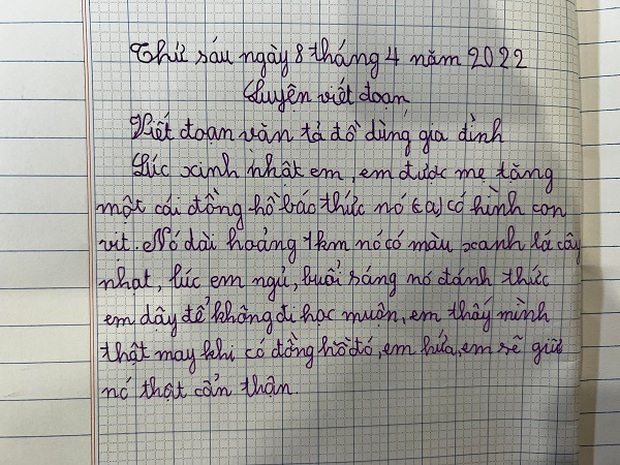 Thứ sáu ngày 8 tháng 4 năm 2022
Luyện viết đoạn
Viết đoạn văn tả đồ dùng gia đình
Lúc xinh nhật em, em được mẹ tặng
một cái đồng hồ báo thức nó (a) có hình con
vịt. Nó dài hoảng 1km nó có màu xanh lá cây
nhạt, lúc em ngủ, buổi sáng nó đánh thức
em dây để không đi học muôn, em thấy mình
thật may khi có đồng hồ đó, em hứa, em sẽ giữ
nó thật cẩn thận.